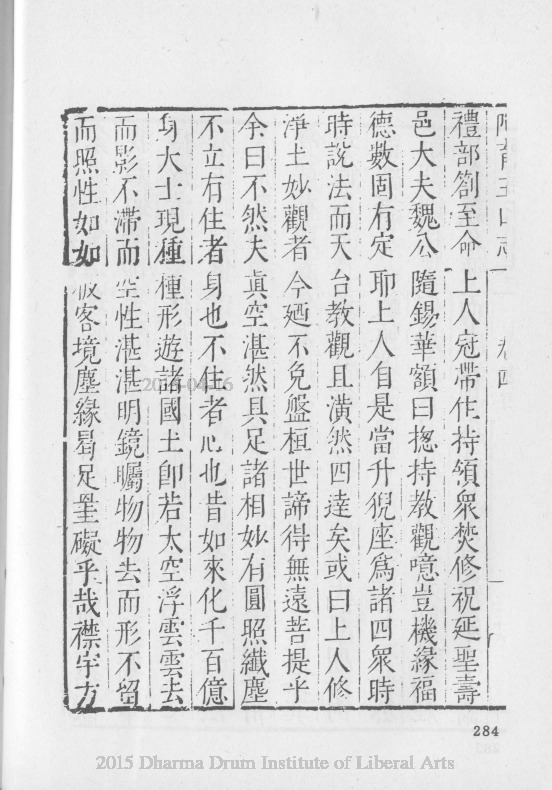 阿育王山志 卷四
禮部劄至命上人冠帶住持領衆焚修祝延聖壽
邑大夫魏公隨錫華額曰揔持教觀噫豈機緣福
德數固有定耶上人自是當升猊座爲諸四衆時
時說法而天台教觀且潢然四達矣或曰上人修
淨土妙觀者今廼不免盤桓世諦得無遠菩提乎
余曰不然夫真空湛然具足諸相妙有圓照纖塵
不立有住者身也不住者心也昔如來化千百億
身大士現種種形遊諸國土卽若太空浮雲雲去
而影不滯而空性湛湛明鏡矚物物去而形不留
而照性如如彼客境塵緣曷足罣礙乎哉襟宇方
284
2015 Dharma Drum Institute of Liberal Arts